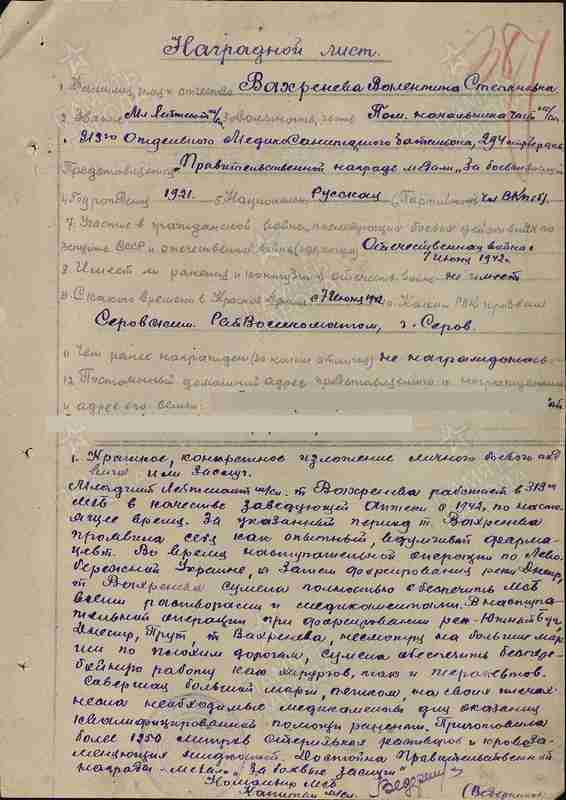 Наградной лист.
1. Фамилия, имя и отчество Вахренева Валентина Степановна
2. Звание Мл. Лейтенант м/с 3. должность, часть Пом. начальника части
313го Отдельного Медико Санитарного батальона, 294 стр. дивиз.
Представляется Правительственной награде медали „За боевые заслуги"
4. Год рождения 1921. 5. Национальн. Русская 6. Партийность Чл ВКП(б).
7. Участие в гражданской войне, последующих боевых действиях по
защите СССР и отечественной войне Отечественная война с
7 июня 1942 г.
8. Имеет ли ранения и контузии в отечеств. войне не имеет
9. С какого времени в Красной Армии с 7 июня 1942 10. Каким РВК призвана
Серовским РайВоенкоматом, г. Серов.
11. Чем ранее награжден (за какие отличия) не награждалась
12. Постоянный домашний адрес представляемого к награждению
и адрес его семьи:
1. Краткое, конкретное изложение личного боевого подвига
или заслуг.
Младший Лейтенант м/сл. т. Вахренева работает в 313м
МСБ в качестве заведующей Аптеки с 1942, по настоящее
время. За указанный период т. Вахренева
проявила себя как опытный, вдумчивый фармацевт.
Во время наступательной операции по Лево-
бережной Украине, а затем форсирования реки Днепр,
т. Вахренева сумела полностью обеспечить МСБ
всеми растворами и медикаментами. В наступа-
тельной операции при форсировании рек - Южный Буг,
Днестр, Прут, т. Вахренева, несмотря на большие мар-
ши по плохим дорогам, сумела обеспечить беспере-
бойную работу как хирургов, так и терапевтов.
Совершая большой марш, пешком, на своих плечах
несла необходимые медикаменты для оказания
квалифицированной помощи раненым. Приготовила
более 1250 литров стерильных растворов и кровоза-
меняющих жидкостей. Достойна Правительственной
награды - медали „За боевые заслуги"
Командир МСБ
Капитан м/сл.